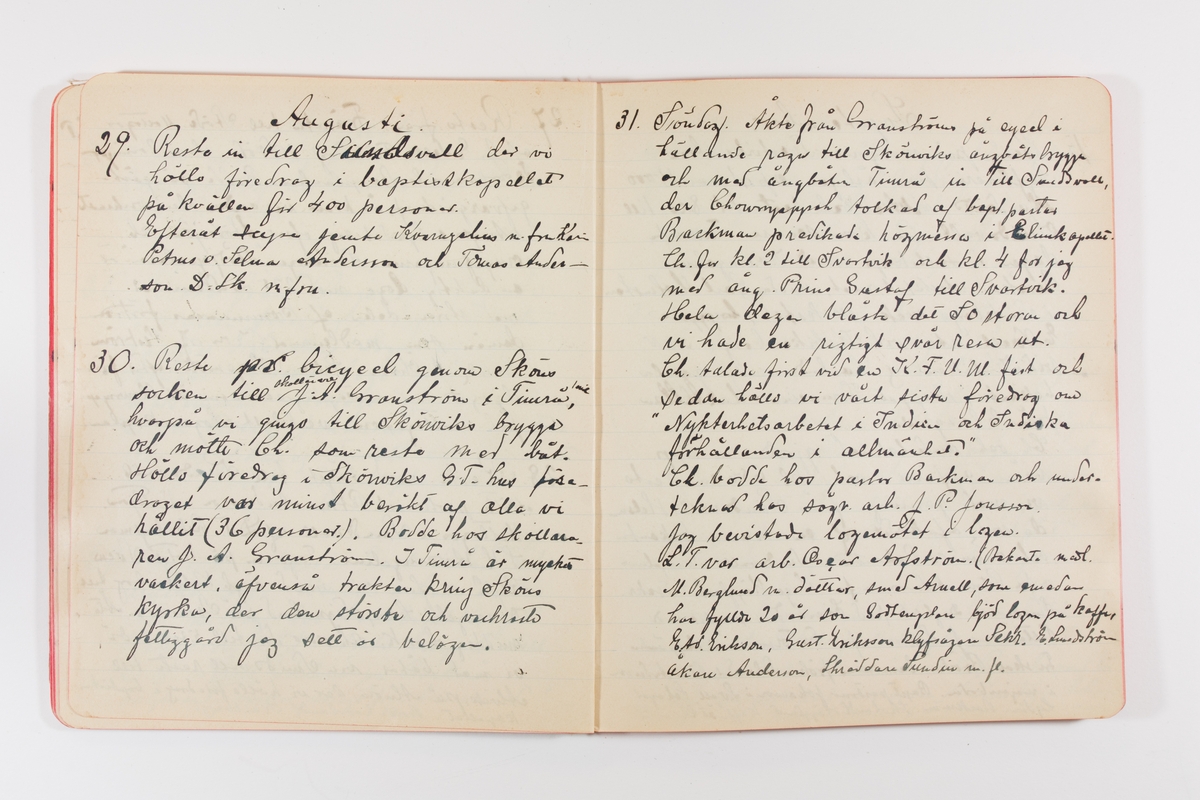 Augusti.
29. Reste in till Sundsvall der vi
höllo föredrag i baptistkapellet
på kvällen för 400 personer.
Efteråt supé jemte Kvarnzelius m. fru Karin
Petrus o. Selma Andersson och Tomas Anders-
son. D. Sk. m. fru.
30. Reste pr. bicycel genom Sköns
socken till skollärare J. A. Granström i Timrå,
hvarpå vi gingo till Skönviks brygga
och mötte Ch. som reste med båt.
Höllo föredrag i Skönviks GT-hus före-
draget var minst besökt af alla vi
hållit (36 personer). Bodde hos skollära-
ren J. A. Granström. I Timrå är mycket
vackert, äfvenså trakten kring Sköns
kyrka, der den största och vackraste
fattiggård jag sett är belägen.
31. Söndag. Åkte från Granströms på cycel i
hållande regn till Skönviks ångbåtsbrygga
och med ångbåten Timrå in till Sundsvall,
der Chowryappah tolkad af bapt. pastor
Backman predikade högmessa i Elimkapellet.
Ch. for kl. 2 till Svartvik och kl. 4 for jag
med ång. Prins Gustaf till Svartvik.
Hela dagen blåste det SO storm och
vi hade en rigtigt svår resa ut.
Ch. talade först vid en K.F.U.M. fest och
sedan höllo vi vårt sista föredrag om
"Nykterhetsarbetet i Indien och Indiska
förhållanden i allmänhet."
Ch. bodde hos pastor Backman och under-
tecknad hos sågv. arb. J. P. Jonsson.
Jag bevistade logemötet i logen.
L. T. var arb. Oscar Hofström. (Bekanta med
M. Berglund m. döttrar, smed Arnell, som enedan
han fyllde 20 år som Godtemplare bjöd logen på kaffe,
Gust. Eriksson klyfsågare Sekr. E. Lundström
åkare Anderson, Skräddare Sundin m. fl.